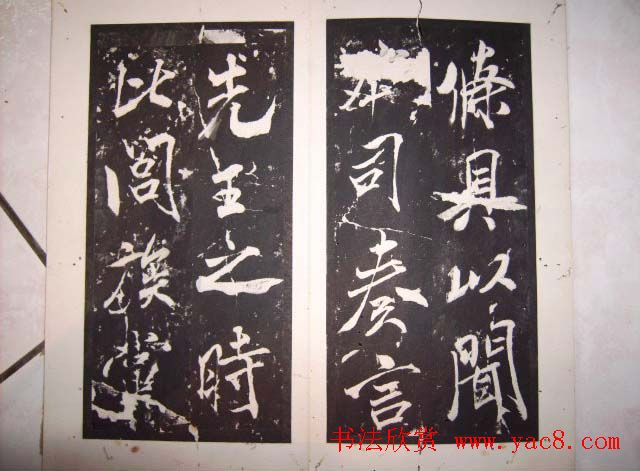 條具以聞
司奏言
先王之時
比閭族黨
书法欣赏 www.yac8.com